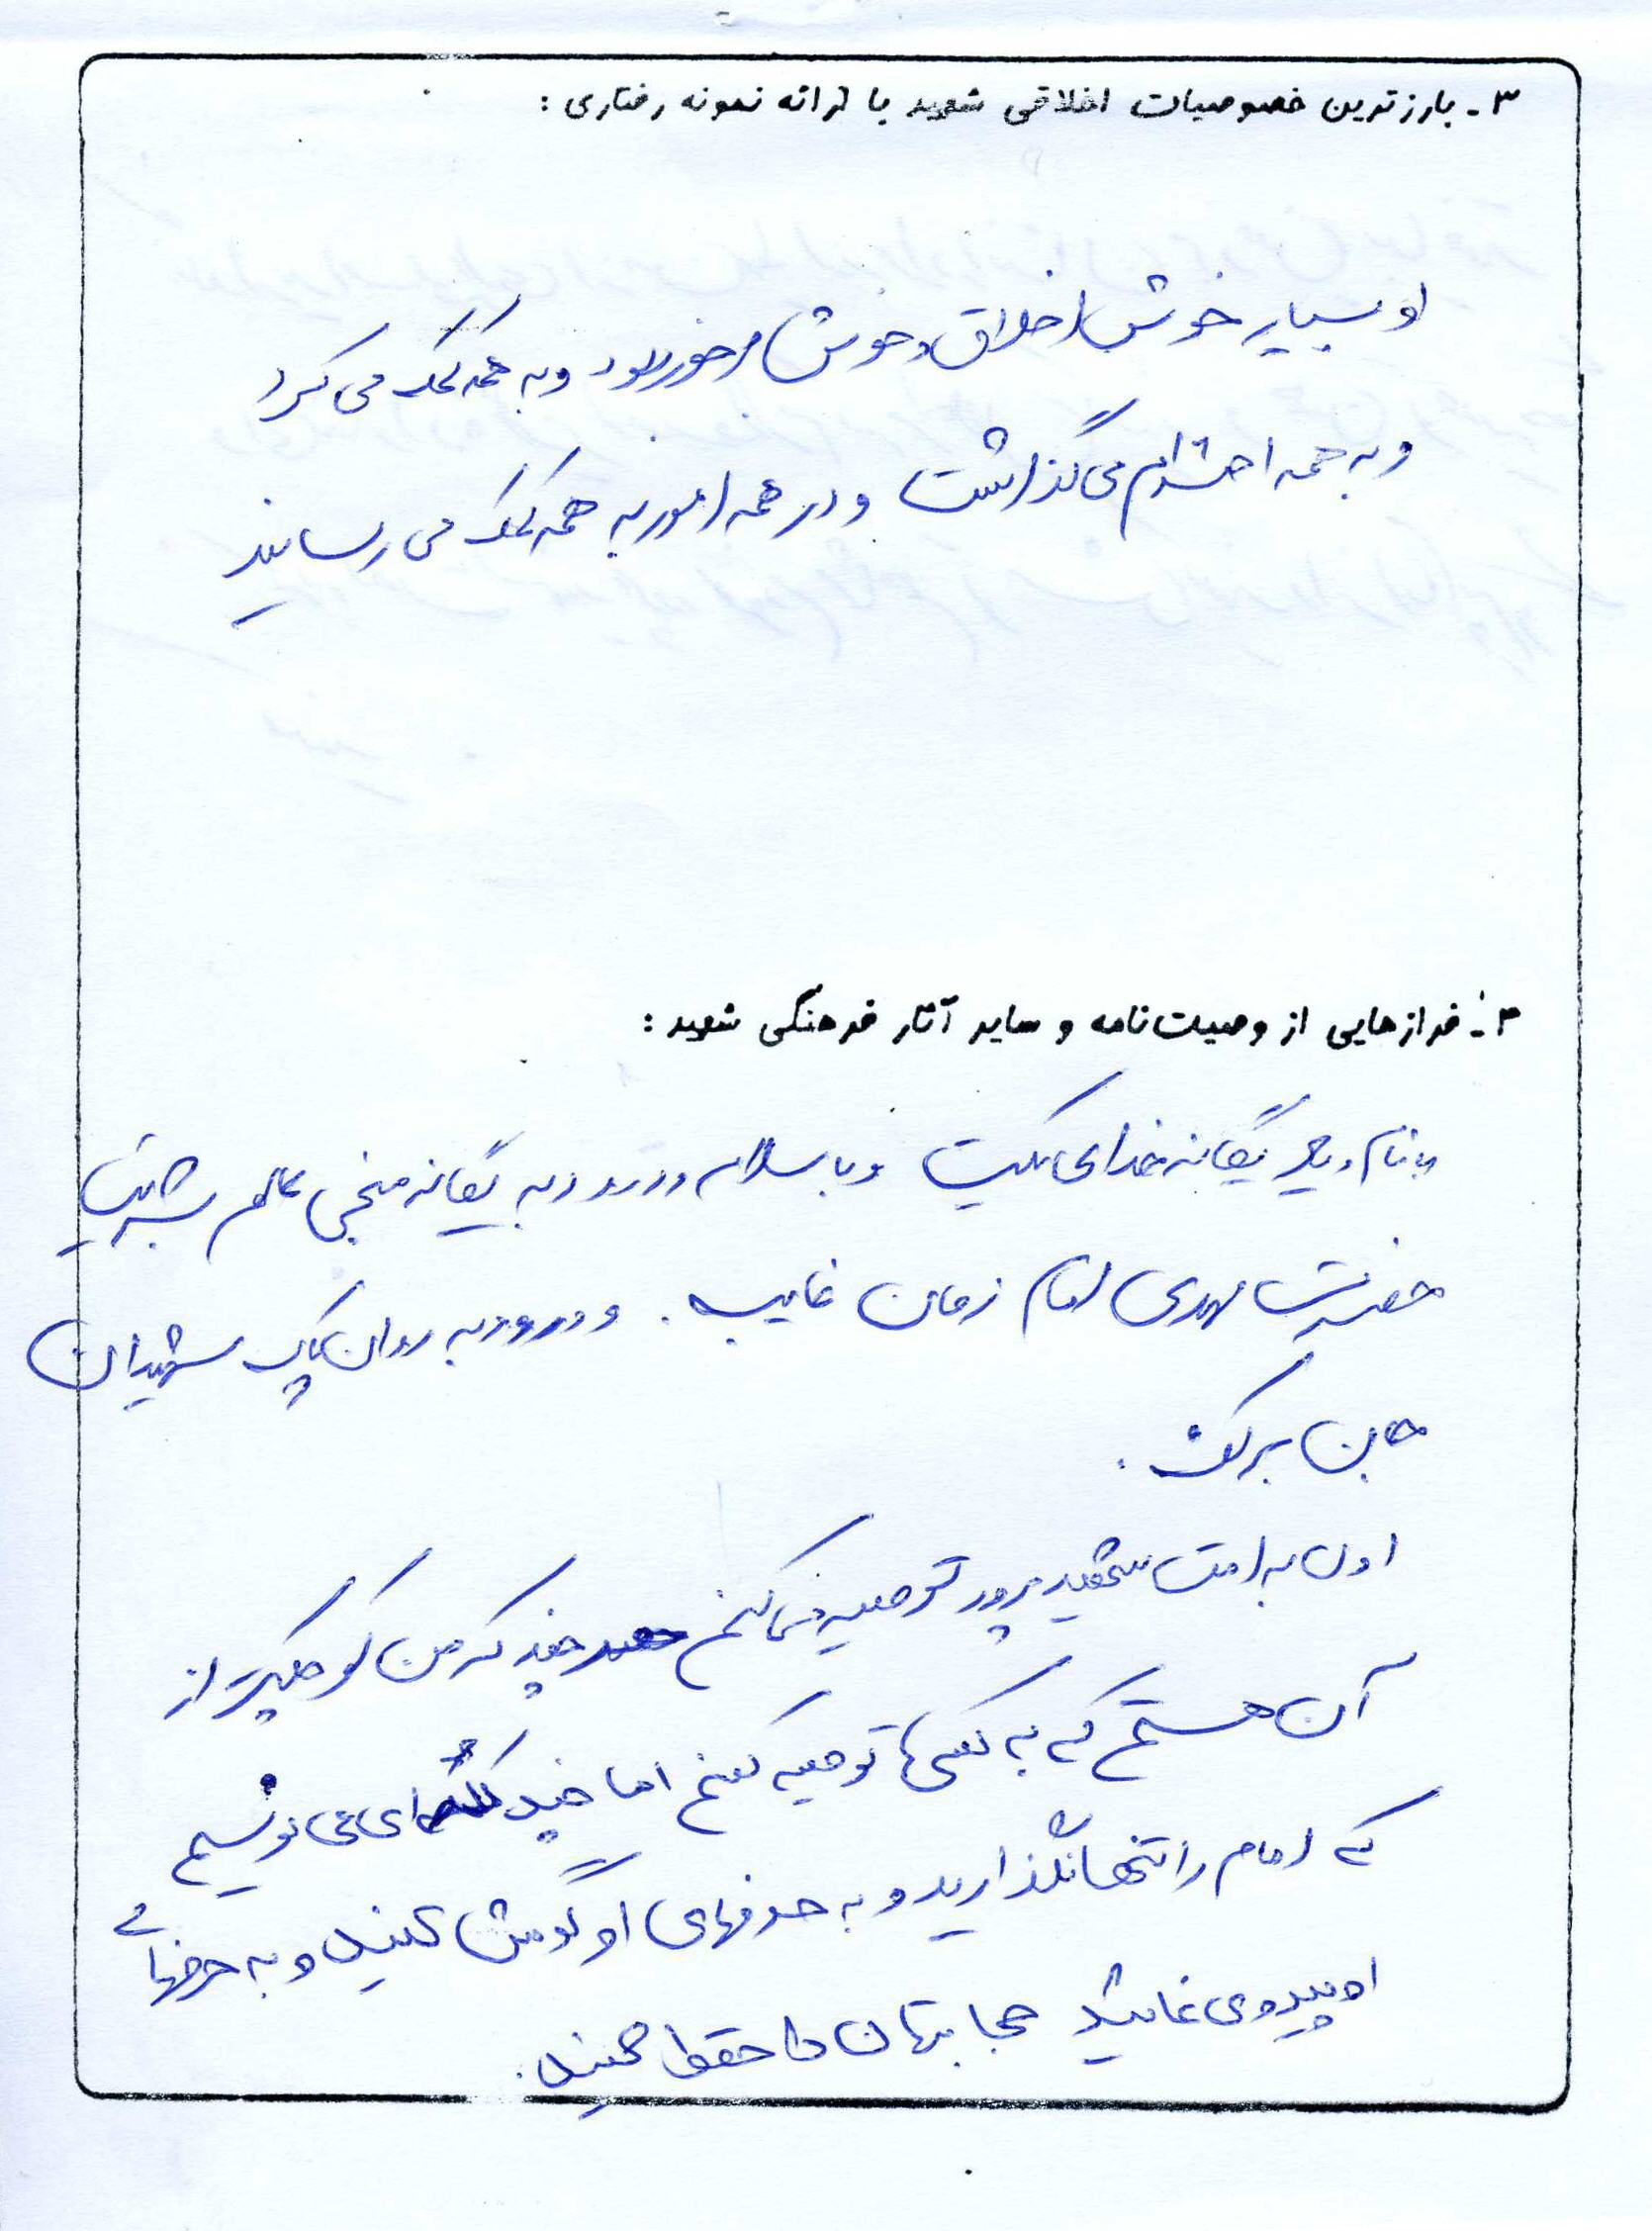 ۳ـ بارزترین خصوصیات اخلاقی شهید با ارائه نمونه رفتاری :
او بسیار خوش اخلاق و خوش برخورد بود و به همه کمک می کرد
و به همه احترام می گذاشت و در همه امور به همه کمک می رسانید
۴ـ فرازهایی از وصیت‌نامه و سایر آثار فرهنگی شهید :
با نام و یاد یگانه خدای یکتا و با سلام و درود به یگانه منجی عالم بشریت
حضرت مهدی امام زمان غایب . و درود به روان پاک شهیدان
جان بر کف .
اول به امت شهید پرور توصیه می کنم چند که من کوچکتر از
آن هستم که به کسی توصیه کنم اما چند کلمه ای می نویسم
که امام را تنها نگذارید و به حرفهای او گوش کنید و به حرفهای
او پیروی نمائید حجابتان را حفظ کنید .